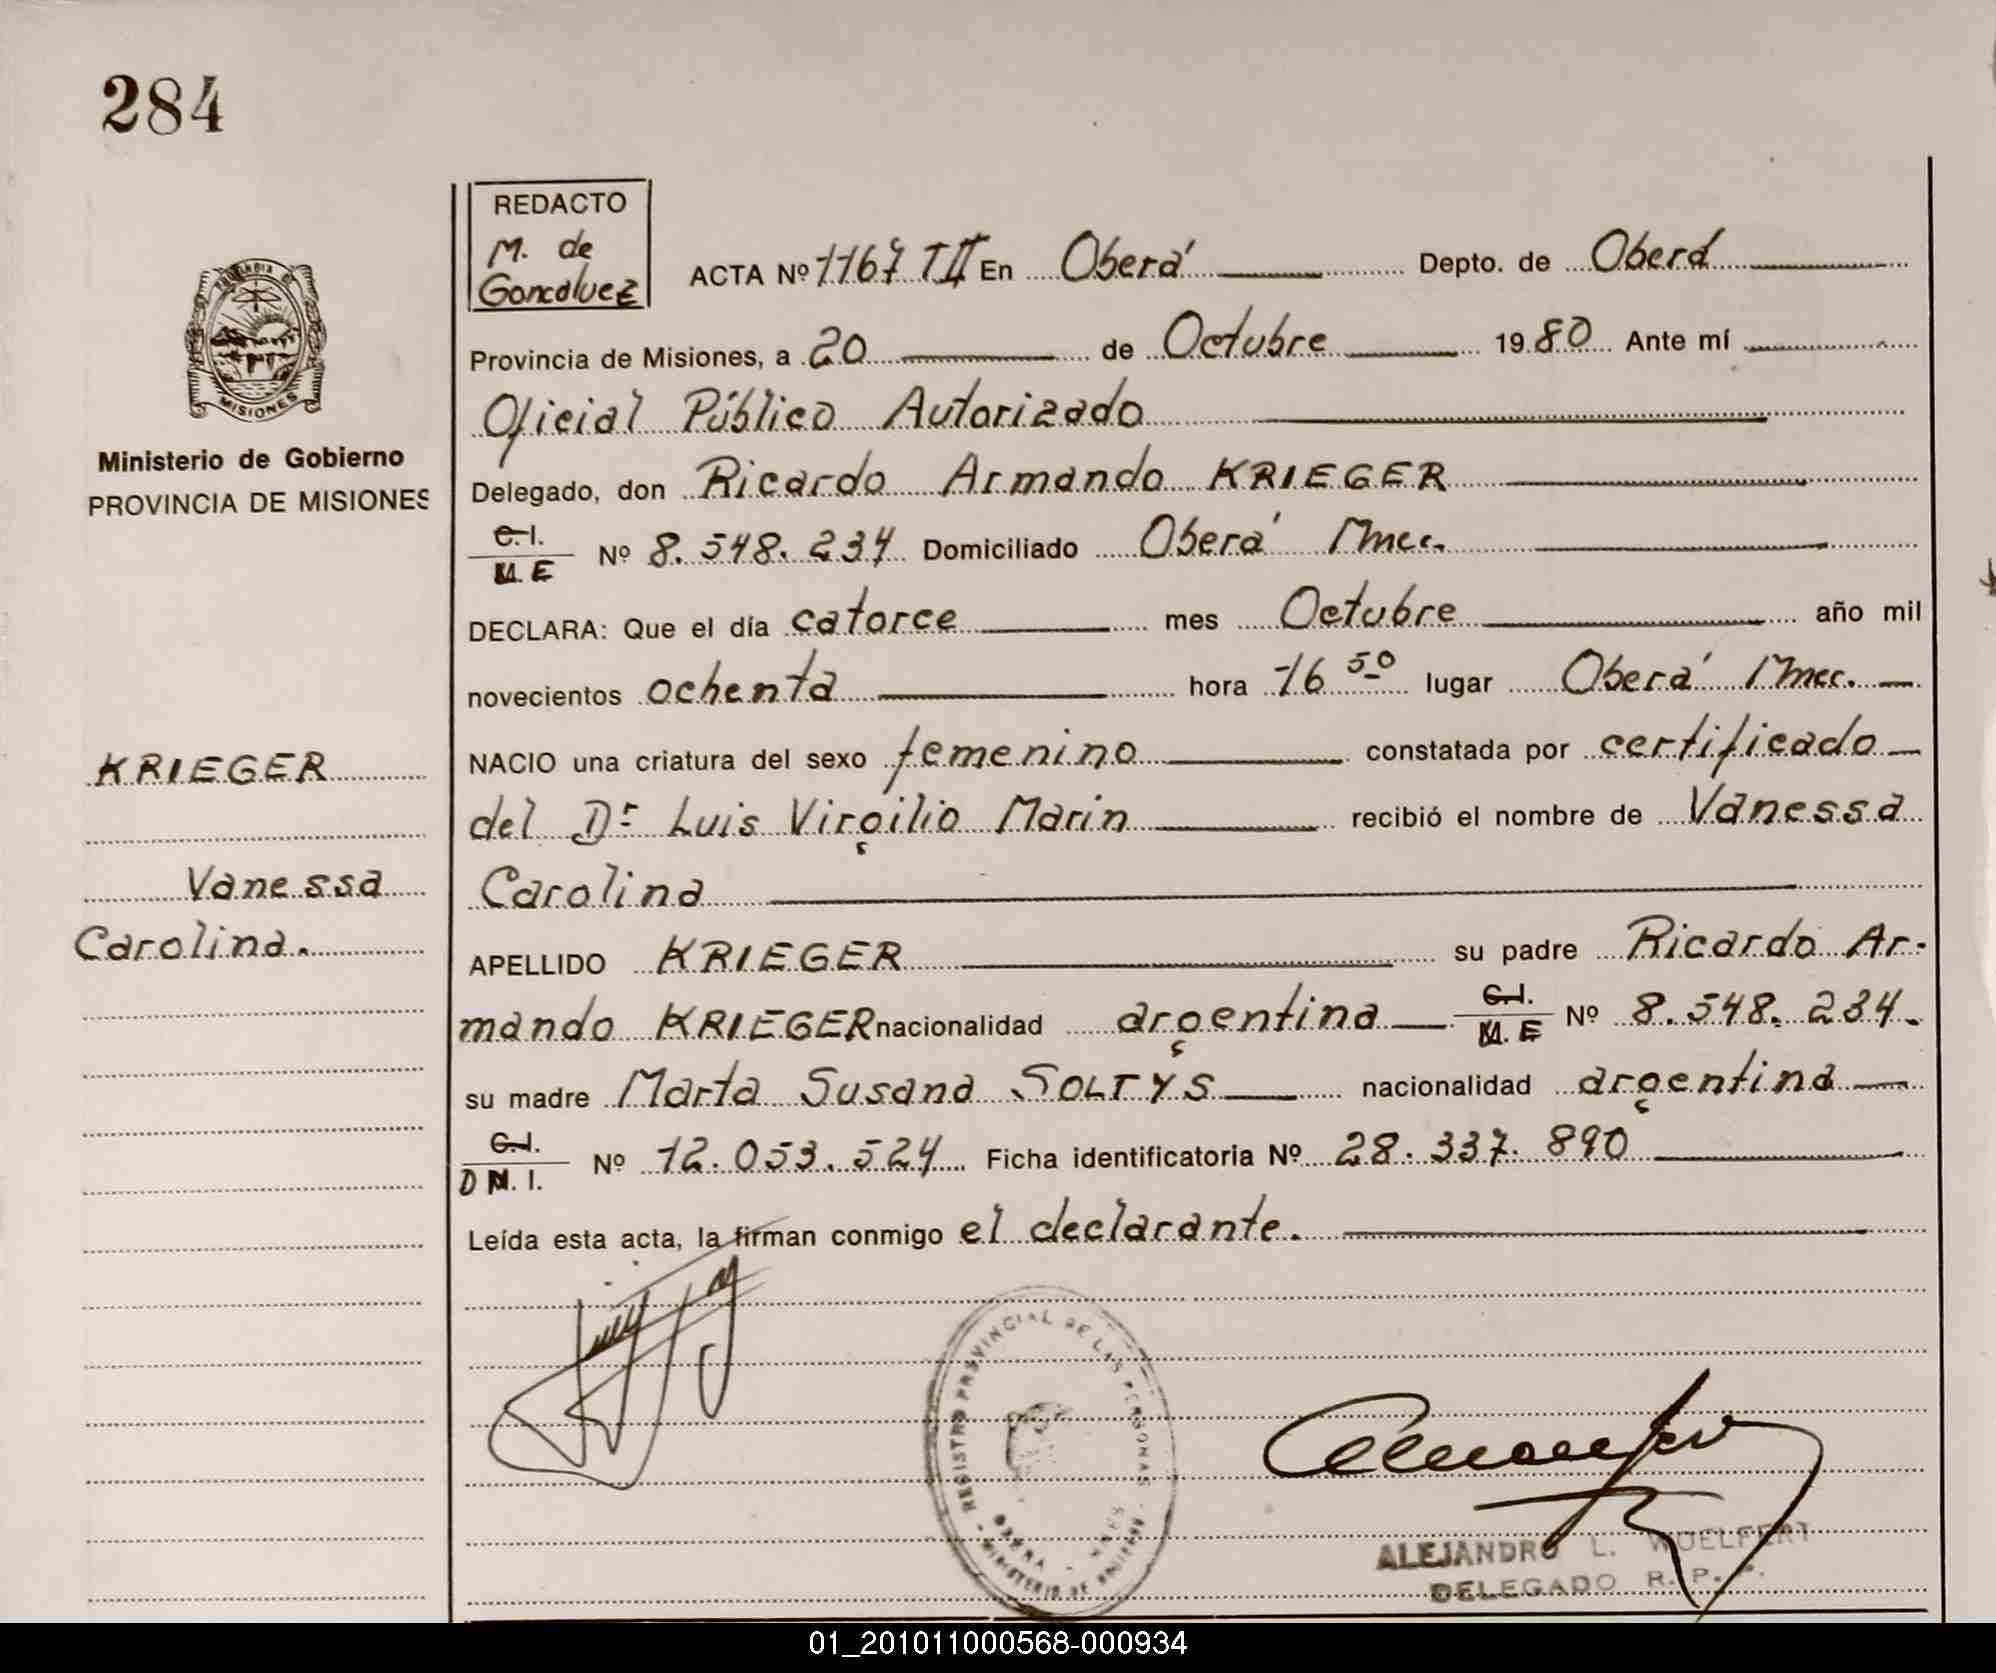 284
REDACTO
M. de
Goncalvez
ACTA Nº 1167 TII En Oberá Depto. de Oberá
Provincia de Misiones, a 20 de Octubre 1980 Ante mí
Oficial Público Autorizado
MISIONES
Ministerio de Gobierno
PROVINCIA DE MISIONES
Delegado, don Ricardo Armando KRIEGER
C.I.
M.E Nº 8.548.234 Domiciliado Oberá Mnes.
DECLARA: Que el día catorce mes Octubre año mil
novecientos ochenta hora 16 50 lugar Oberá Mnes.
KRIEGER
Vanessa
Carolina.
NACIO una criatura del sexo femenino constatada por certificado
del Dr Luis Virgilio Marin recibió el nombre de Vanessa
Carolina
APELLIDO KRIEGER su padre Ricardo Ar-
mando KRIEGER nacionalidad argentina C.I. M.E Nº 8.548.234.
su madre Marta Susana SOLTYS nacionalidad argentina
C.I.
D N. I. Nº 12.053.524 Ficha identificatoria Nº 28.337.890
Leída esta acta, la firman conmigo el declarante.
REGISTRO PROVINCIAL DE LAS PERSONAS
OBERA - MNES
MINISTERIO DE GOBIERNO
ALEJANDRO L. WOELFERT
DELEGADO R. P. P.
01_201011000568-000934